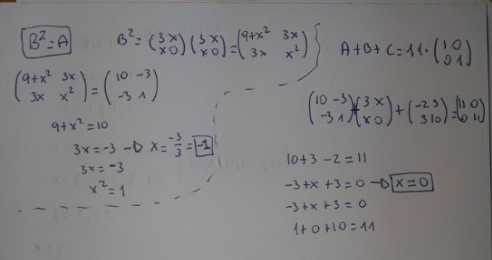 B²=A
B² = (3 x / x 0) (3 x / x 0) = (9+x² 3x / 3x x²)
(9+x² 3x / 3x x²) = (10 -3 / -3 1)
9+x² = 10
3x = -3 → x = -3/3 = -1
3x = -3
x² = 1
A+B+C = 11·(1 0 / 0 1)
(10 -3 / -3 1) + (3 x / x 0) + (-2 3 / 3 10) = (11 0 / 0 11)
10+3-2 = 11
-3+x+3 = 0 → x=0
-3+x+3 = 0
1+0+10 = 11